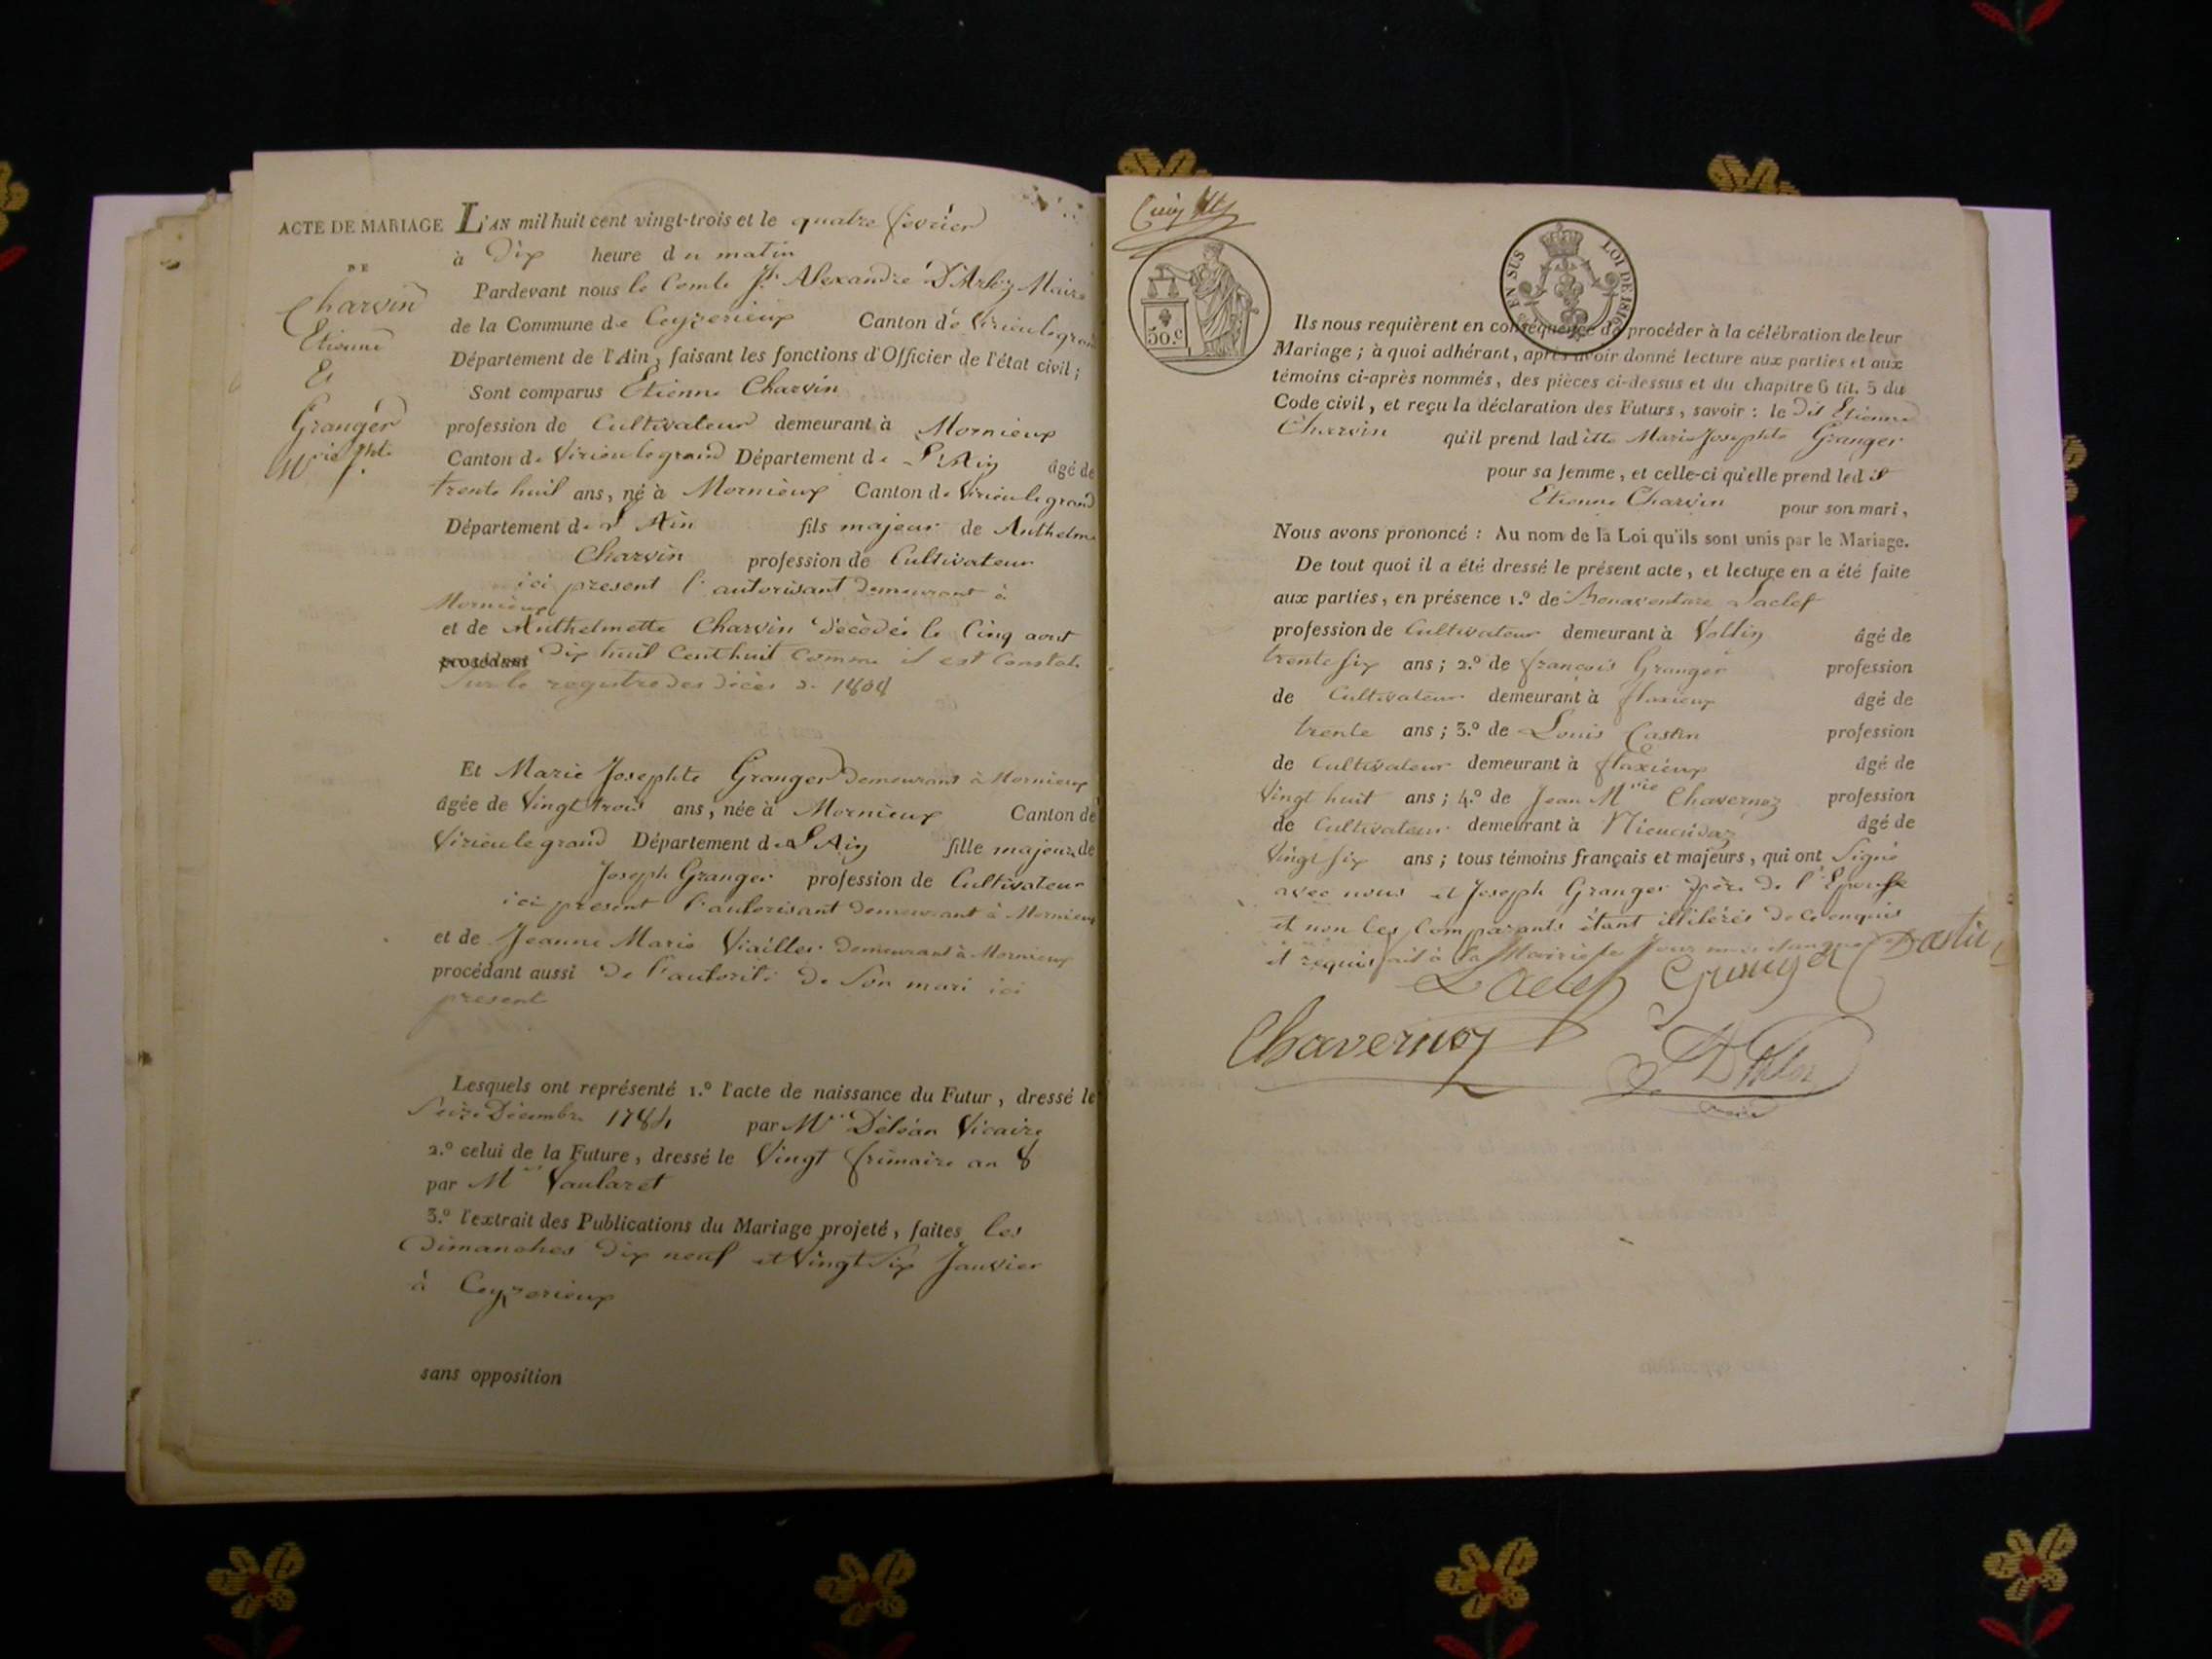 ACTE DE MARIAGE
DE
Charvin
Etienne
Et
Granger
Mrie Jphte
L'AN mil huit cent vingt-trois et le quatre fevrier
à Dix heure du matin
Pardevant nous le Comte Alexandre D'Arloz Maire
de la Commune de Ceyzerieux Canton de Virieulegrand
Département de l'Ain, faisant les fonctions d'Officier de l'état civil;
Sont comparus Etienne Charvin
profession de Cultivateur demeurant à Mornieux
Canton de Virieulegrand Département de L'Ain âgé de
trente huit ans, né à Mornieux Canton de Virieulegrand
Département de L'Ain fils majeur de Anthelme
Charvin profession de Cultivateur
ici present l'autorisant demeurant à
Mornieux
et de Anthelmette Charvin décédée le Cinq aout
procédant Dix huit Cent huit Comme il est Constaté
Sur le registre des décès de 1808
Et Marie Josephte Granger demeurant à Mornieux
âgée de Vingt trois ans, née à Mornieux Canton de
Virieulegrand Département de L'Ain fille majeure de
Joseph Granger profession de Cultivateur
ici present l'autorisant demeurant à Mornieux
et de Jeanne Marie Viailler demeurant à Mornieux
procédant aussi de l'autorité de Son mari ici
present
Lesquels ont représenté 1.º l'acte de naissance du Futur, dressé le
Seize Décembre 1784 par Mr Vicaire
2.º celui de la Future, dressé le Vingt frimaire an 8
par Mr Vaularet
3.º l'extrait des Publications du Mariage projeté, faites les
Dimanches dix neuf et Vingt Six Janvier
à Ceyzerieux
sans opposition
50.c
EN SUS
LOI DE 1816
Ils nous requièrent en conséquence de procéder à la célébration de leur
Mariage; à quoi adhérant, après avoir donné lecture aux parties et aux
témoins ci-après nommés, des pièces ci-dessus et du chapitre 6 tit. 5 du
Code civil, et reçu la déclaration des Futurs, savoir: le dit Etienne
Charvin qu'il prend laditte Marie Josephte Granger
pour sa femme, et celle-ci qu'elle prend ledit
Etienne Charvin pour son mari,
Nous avons prononcé: Au nom de la Loi qu'ils sont unis par le Mariage.
De tout quoi il a été dressé le présent acte, et lecture en a été faite
aux parties, en présence 1.º de Bonaventure Laclef
profession de Cultivateur demeurant à Vollin âgé de
trente six ans; 2.º de françois Granger profession
de Cultivateur demeurant à flaxieux âgé de
trente ans; 3.º de Louis Castin profession
de Cultivateur demeurant à flaxieux âgé de
Vingt huit ans; 4.º de Jean Mrie Chavernoz profession
de Cultivateur demeurant à âgé de
Vingt Six ans; tous témoins français et majeurs, qui ont Signé
avec nous et Joseph Granger père de l'Epouse
et non les Comparants étant illitérés de ce enquis
et requis fait à la Mairie les jour mois et an que
Laclef Granger Castin
Chavernoz